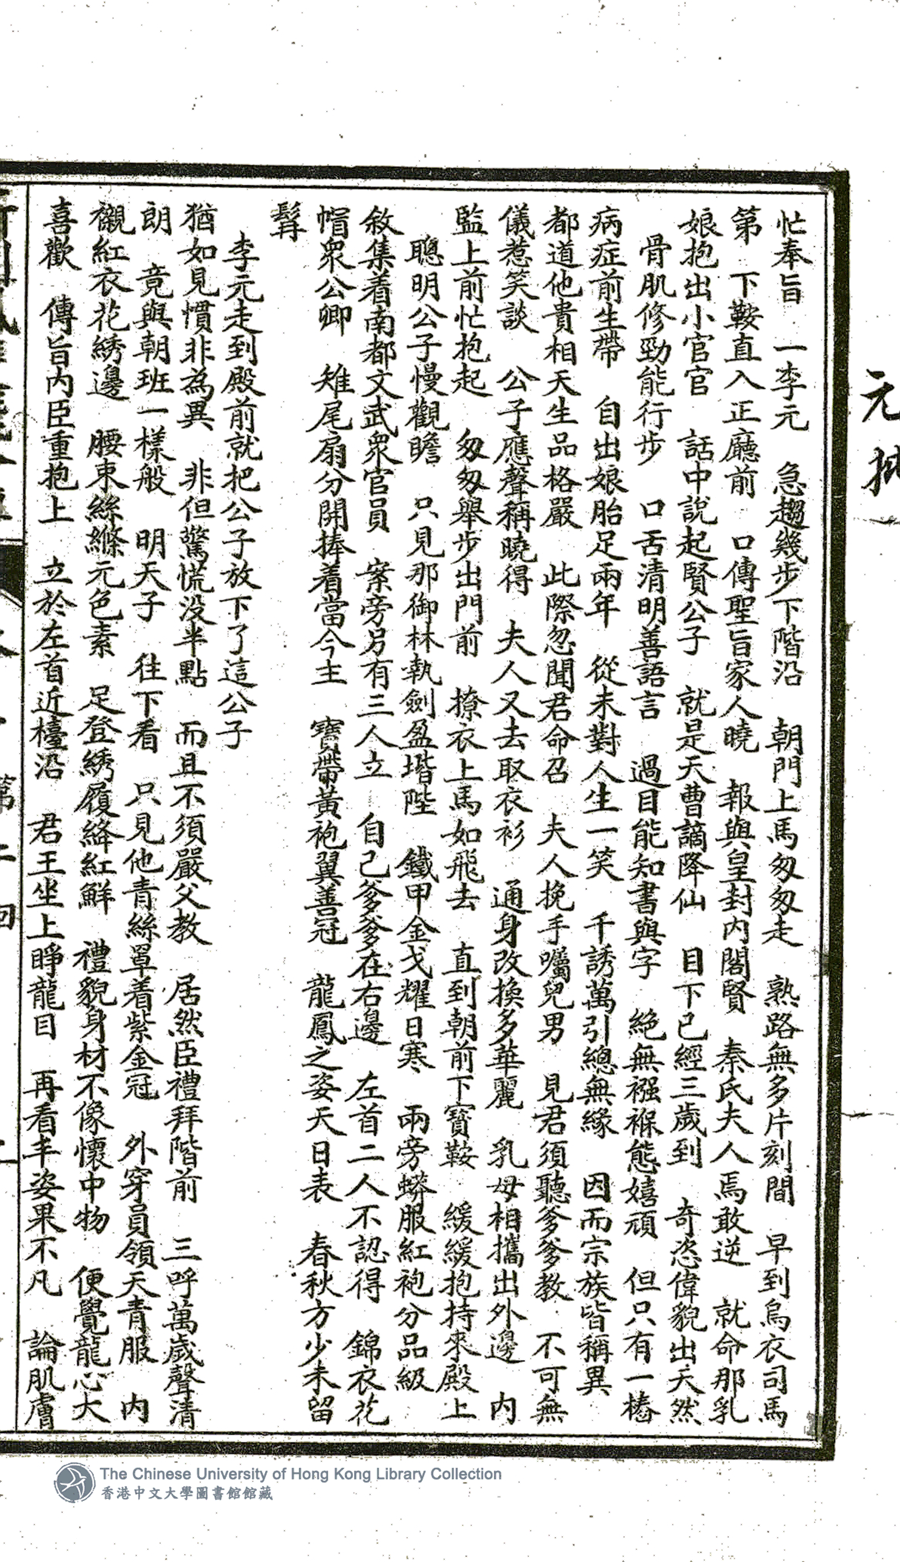 忙奉旨　一李元　急趨幾步下階沿　朝門上馬匆匆走　熟路無多片刻間　早到烏衣司馬
第　下鞍直入正廳前　口傳聖旨家人曉　報與皇封內閣賢　秦氏夫人焉敢逆　就命那乳
娘抱出小官官　話中說起賢公子　就是天曹謫降仙　目下已經三歲到　奇恣偉貌出天然
骨肌修勁能行步　口舌清明善語言　過目能知書與字　絕無襁褓態嬉頑　但只有一樁
病症前生帶　自出娘胎足兩年　從未對人生一笑　千誘萬引總無緣　因而宗族皆稱異
都道他貴相天生品格嚴　此際忽聞君命召　夫人挽手囑兒男　見君須聽爹爹教　不可無
儀惹笑談　公子應聲稱曉得　夫人又去取衣衫　通身改換多華麗　乳母相攜出外邊　內
監上前忙抱起　匆匆舉步出門前　撩衣上馬如飛去　直到朝前下寶鞍　緩緩抱持來殿上
聰明公子慢觀瞻　只見那御林執劍盈堦陛　鐵甲金戈耀日寒　兩旁蟒服紅袍分品級
敘集着南都文武眾官員　案旁另有三人立　自己爹爹在右邊　左首二人不認得　錦衣花
帽眾公卿　雉尾扇分開捧着當今主　寶帶黃袍翼善冠　龍鳳之姿天日表　春秋方少未留
髯
李元走到殿前就把公子放下了這公子
猶如見慣非為異　非但驚慌沒半點　而且不須嚴父教　居然臣禮拜階前　三呼萬歲聲清
朗　竟與朝班一樣般　明天子　往下看　只見他青絲罩着紫金冠　外穿員領天青服　內
襯紅衣花綉邊　腰束絲縧元色素　足登綉履絳紅鮮　禮貌身材不像懷中物　便覺龍心大
喜歡　傳旨內臣重抱上　立於左首近檯沿　君王坐上睜龍目　再看丰姿果不凡　論肌膚
第
回
The Chinese University of Hong Kong Library Collection
香港中文大學圖書館館藏